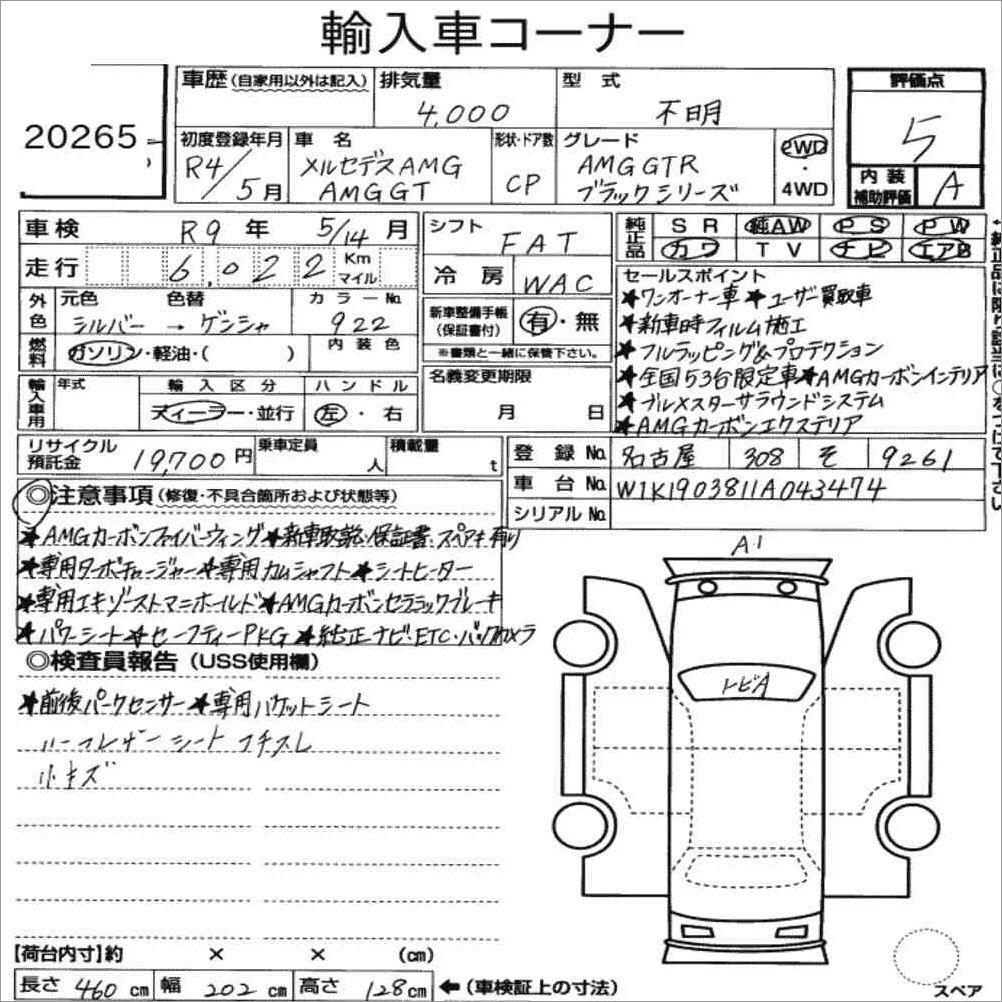 輸入車コーナー
20265
車歴(自家用以外は記入) 排気量 4,000 型式 不明
評価点 5
初度登録年月 R4/5月 車名 メルセデスAMG AMG GT 形状・ドア数 CP グレード AMG GTR ブラックシリーズ 2WD・4WD
内装補助評価 A
車検 R9年 5/14月
走行 6,022 Km マイル
シフト FAT
冷房 WAC
純正品 SR 純AW PS PW
カワ TV ナビ エアB
外色 元色 シルバー → 色替 ゲンシャ カラーNo. 922
燃料 ガソリン・軽油・( ) 内装色
新車整備手帳(保証書付) 有・無
※書類と一緒に保管下さい。
輸入車用 年式 輸入区分 ディーラー・並行 ハンドル 左・右
名義変更期限 月 日
セールスポイント
★ワンオーナー車 ★ユーザー買取車
★新車時フィルム施工
★フルラッピング&プロテクション
★全国53台限定車★AMGカーボンインテリア
★ブルメスターサラウンドシステム
★AMGカーボンエクステリア
リサイクル預託金 19,700円 乗車定員 人 積載量 t
登録No. 名古屋 308 そ 9261
車台No. W1K1903811A043474
シリアルNo.
◎注意事項(修復・不具合箇所および状態等)
★AMGカーボンファイバーウィング★新車取説・保証書、スペアキー有り
★専用ターボチャージャー★専用カムシャフト★シートヒーター
★専用エキゾーストマニホールド★AMGカーボンセラミックブレーキ
★パワーシート★セーフティーPKG ★純正ナビ・ETC・バックカメラ
◎検査員報告(USS使用欄)
★前後パークセンサー★専用バケットシート
ハーフレザーシート コチスレ
小キズ
A1
トビA
【荷台内寸】約 × × (cm)
長さ 460 cm 幅 202 cm 高さ 128 cm ←(車検証上の寸法)
スペア